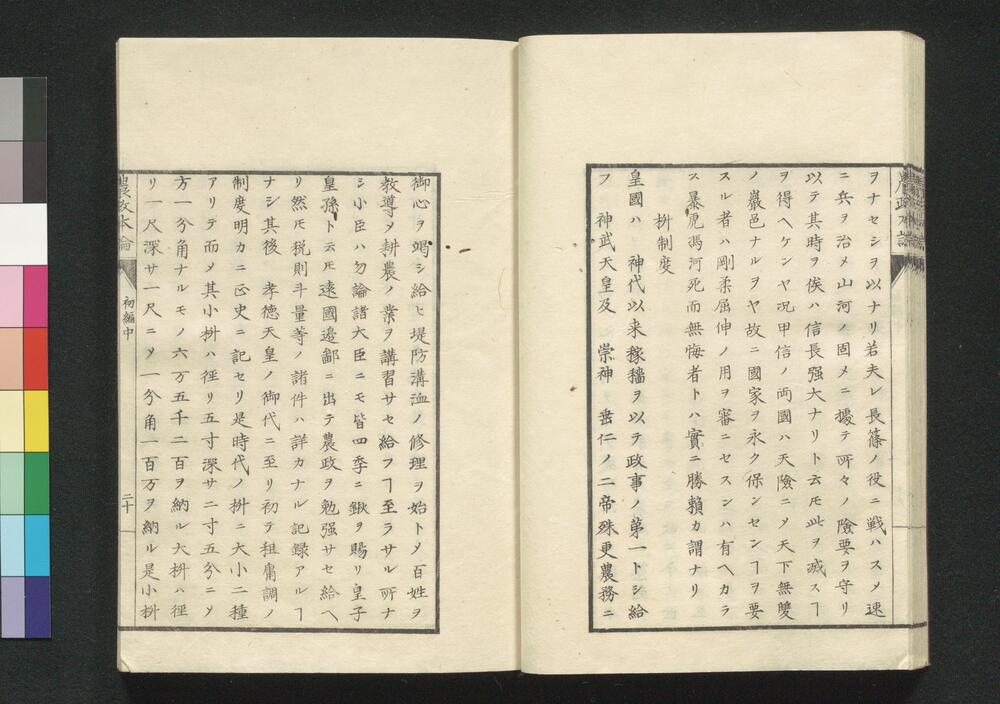 ヲナセシヲ以ナリ若夫レ長篠ノ役ニ戦ハスメ速
ニ兵ヲ治メ山河ノ固メニ據テ所々ノ險要ヲ守リ
以テ其時ヲ俟ハ信長强大ナリト云𪜈此ヲ滅スヿ
ヲ得ヘケンヤ况甲信ノ両國ハ天險ニメ天下無雙
ノ巖邑ナルヲヤ故ニ國家ヲ永ク保ンセンヿヲ要
スル者ハ剛柔屈伸ノ用ヲ審ニセスンハ有ヘカラ
ス暴虎馮河死而無悔者トハ實ニ勝賴カ謂ナリ
枡制度
皇國ハ 神代以来稼穡ヲ以テ政事ノ第一トシ給
フ 神武天皇及 崇神 垂仁ノ二帝殊更農務ニ
御心ヲ竭シ給ヒ堤防溝洫ノ修理ヲ始トメ百姓ヲ
教導メ耕農ノ業ヲ講習サセ給フヿ至ラサル所ナ
シ小臣ハ勿論諸大臣ニモ皆四季ニ鍬ヲ賜リ皇子
皇孫ト云𪜈遠國邉鄙ニ出テ農政ヲ勉强サセ給ヘ
リ然𪜈税則斗量等ノ諸件ハ詳カナル記録アルヿ
ナシ其後 孝徳天皇ノ御代ニ至リ初テ租庸調ノ
制度明カニ正史ニ記セリ是時代ノ枡ニ大小二種
アリテ而メ其小枡ハ徑リ五寸深サ二寸五分ニメ
方一分角ナルモノ六万五千二百ヲ納ル大枡ハ徑
リ一尺深サ一尺ニメ一分角一百万ヲ納ル是小枡
農政本論
初編中
二十